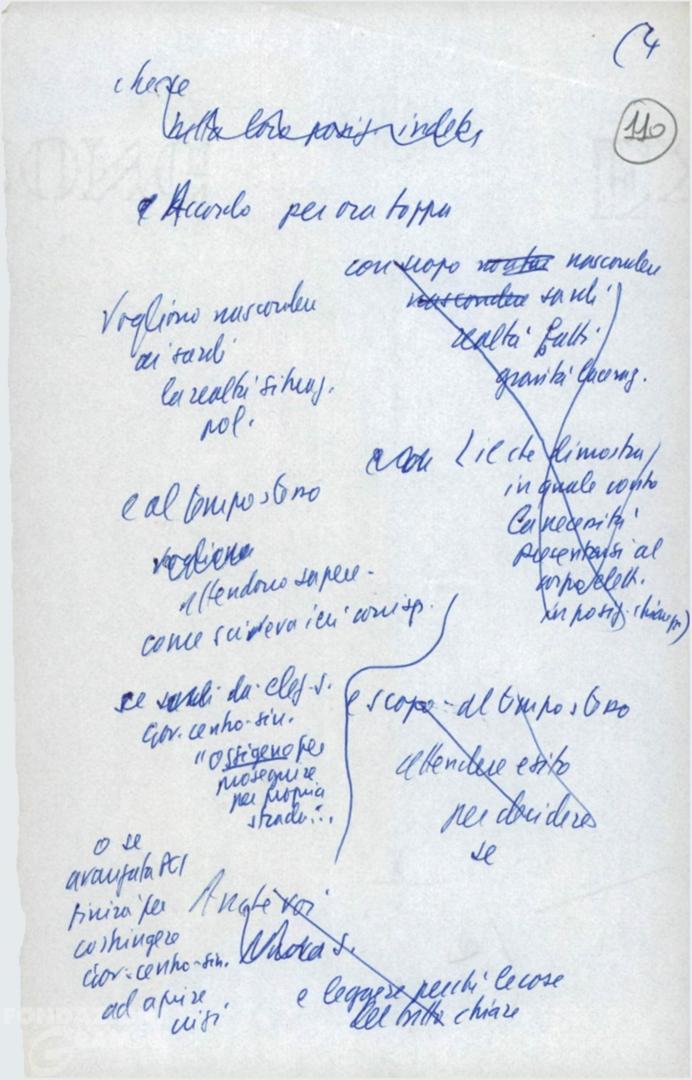 (4
110
che se
nella loro posiz. indeb.
e Accordo per ora toppa
con scopo nascondere
nascondere sardi
realtà fatti
gravità laceraz.
Vogliono nascondere
ai sardi
la realtà situaz.
pol.
e con (il che dimostra
in quale conto
la necessità
presentarsi al
corpo elett.
in posiz. chiare)
e al tempo stesso
vogliono
attendono sapere
come scriveva ieri corrisp.
se sardi da
Gov. centro-sin.
"Ossigeno per
proseguire
per propria
strada"...
e scopo - al tempo stesso
attendere esito
per decidere
se
o se
avanzata PCI
finirà per
costringere
Gov. centro-sin.
ad aprire
crisi
Anche voi
e leggere perché le cose
chiare
FONDAZIONE
GRAMSCI